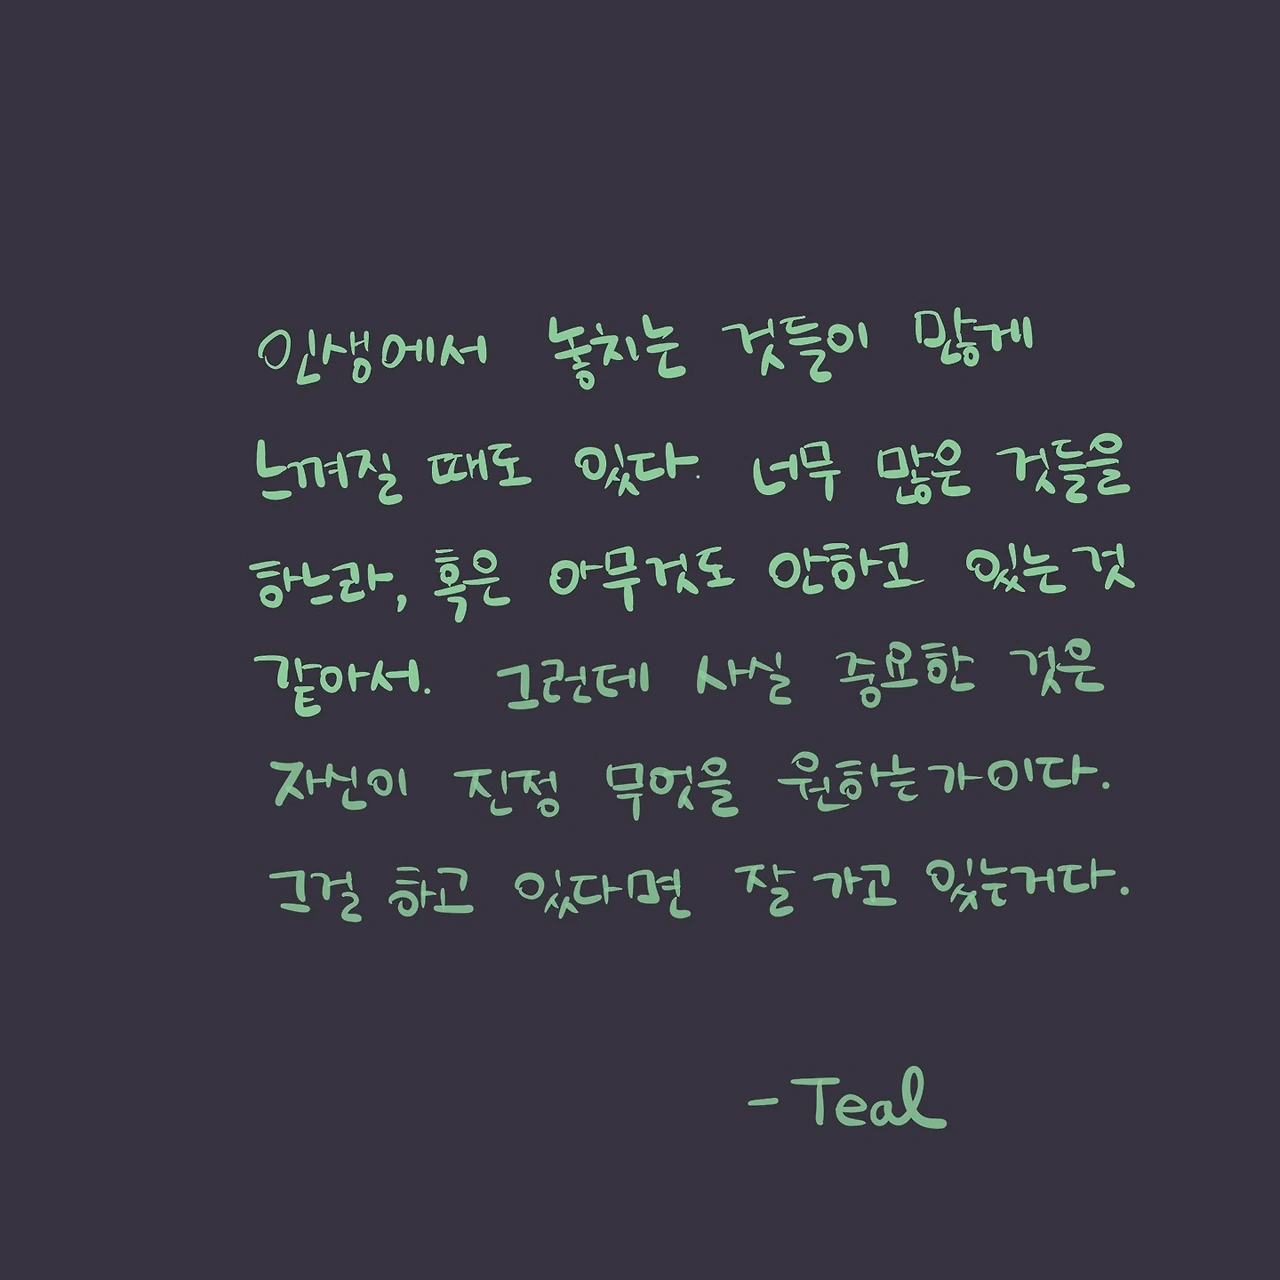 인생에서 놓치는 것들이 많게
느껴질 때도 있다. 너무 많은 것들을
하느라, 혹은 아무것도 안하고 있는 것
같아서. 그런데 사실 중요한 것은
자신이 진정 무엇을 원하는가이다.
그걸 하고 있다면 잘 가고 있는거다.
- Teal